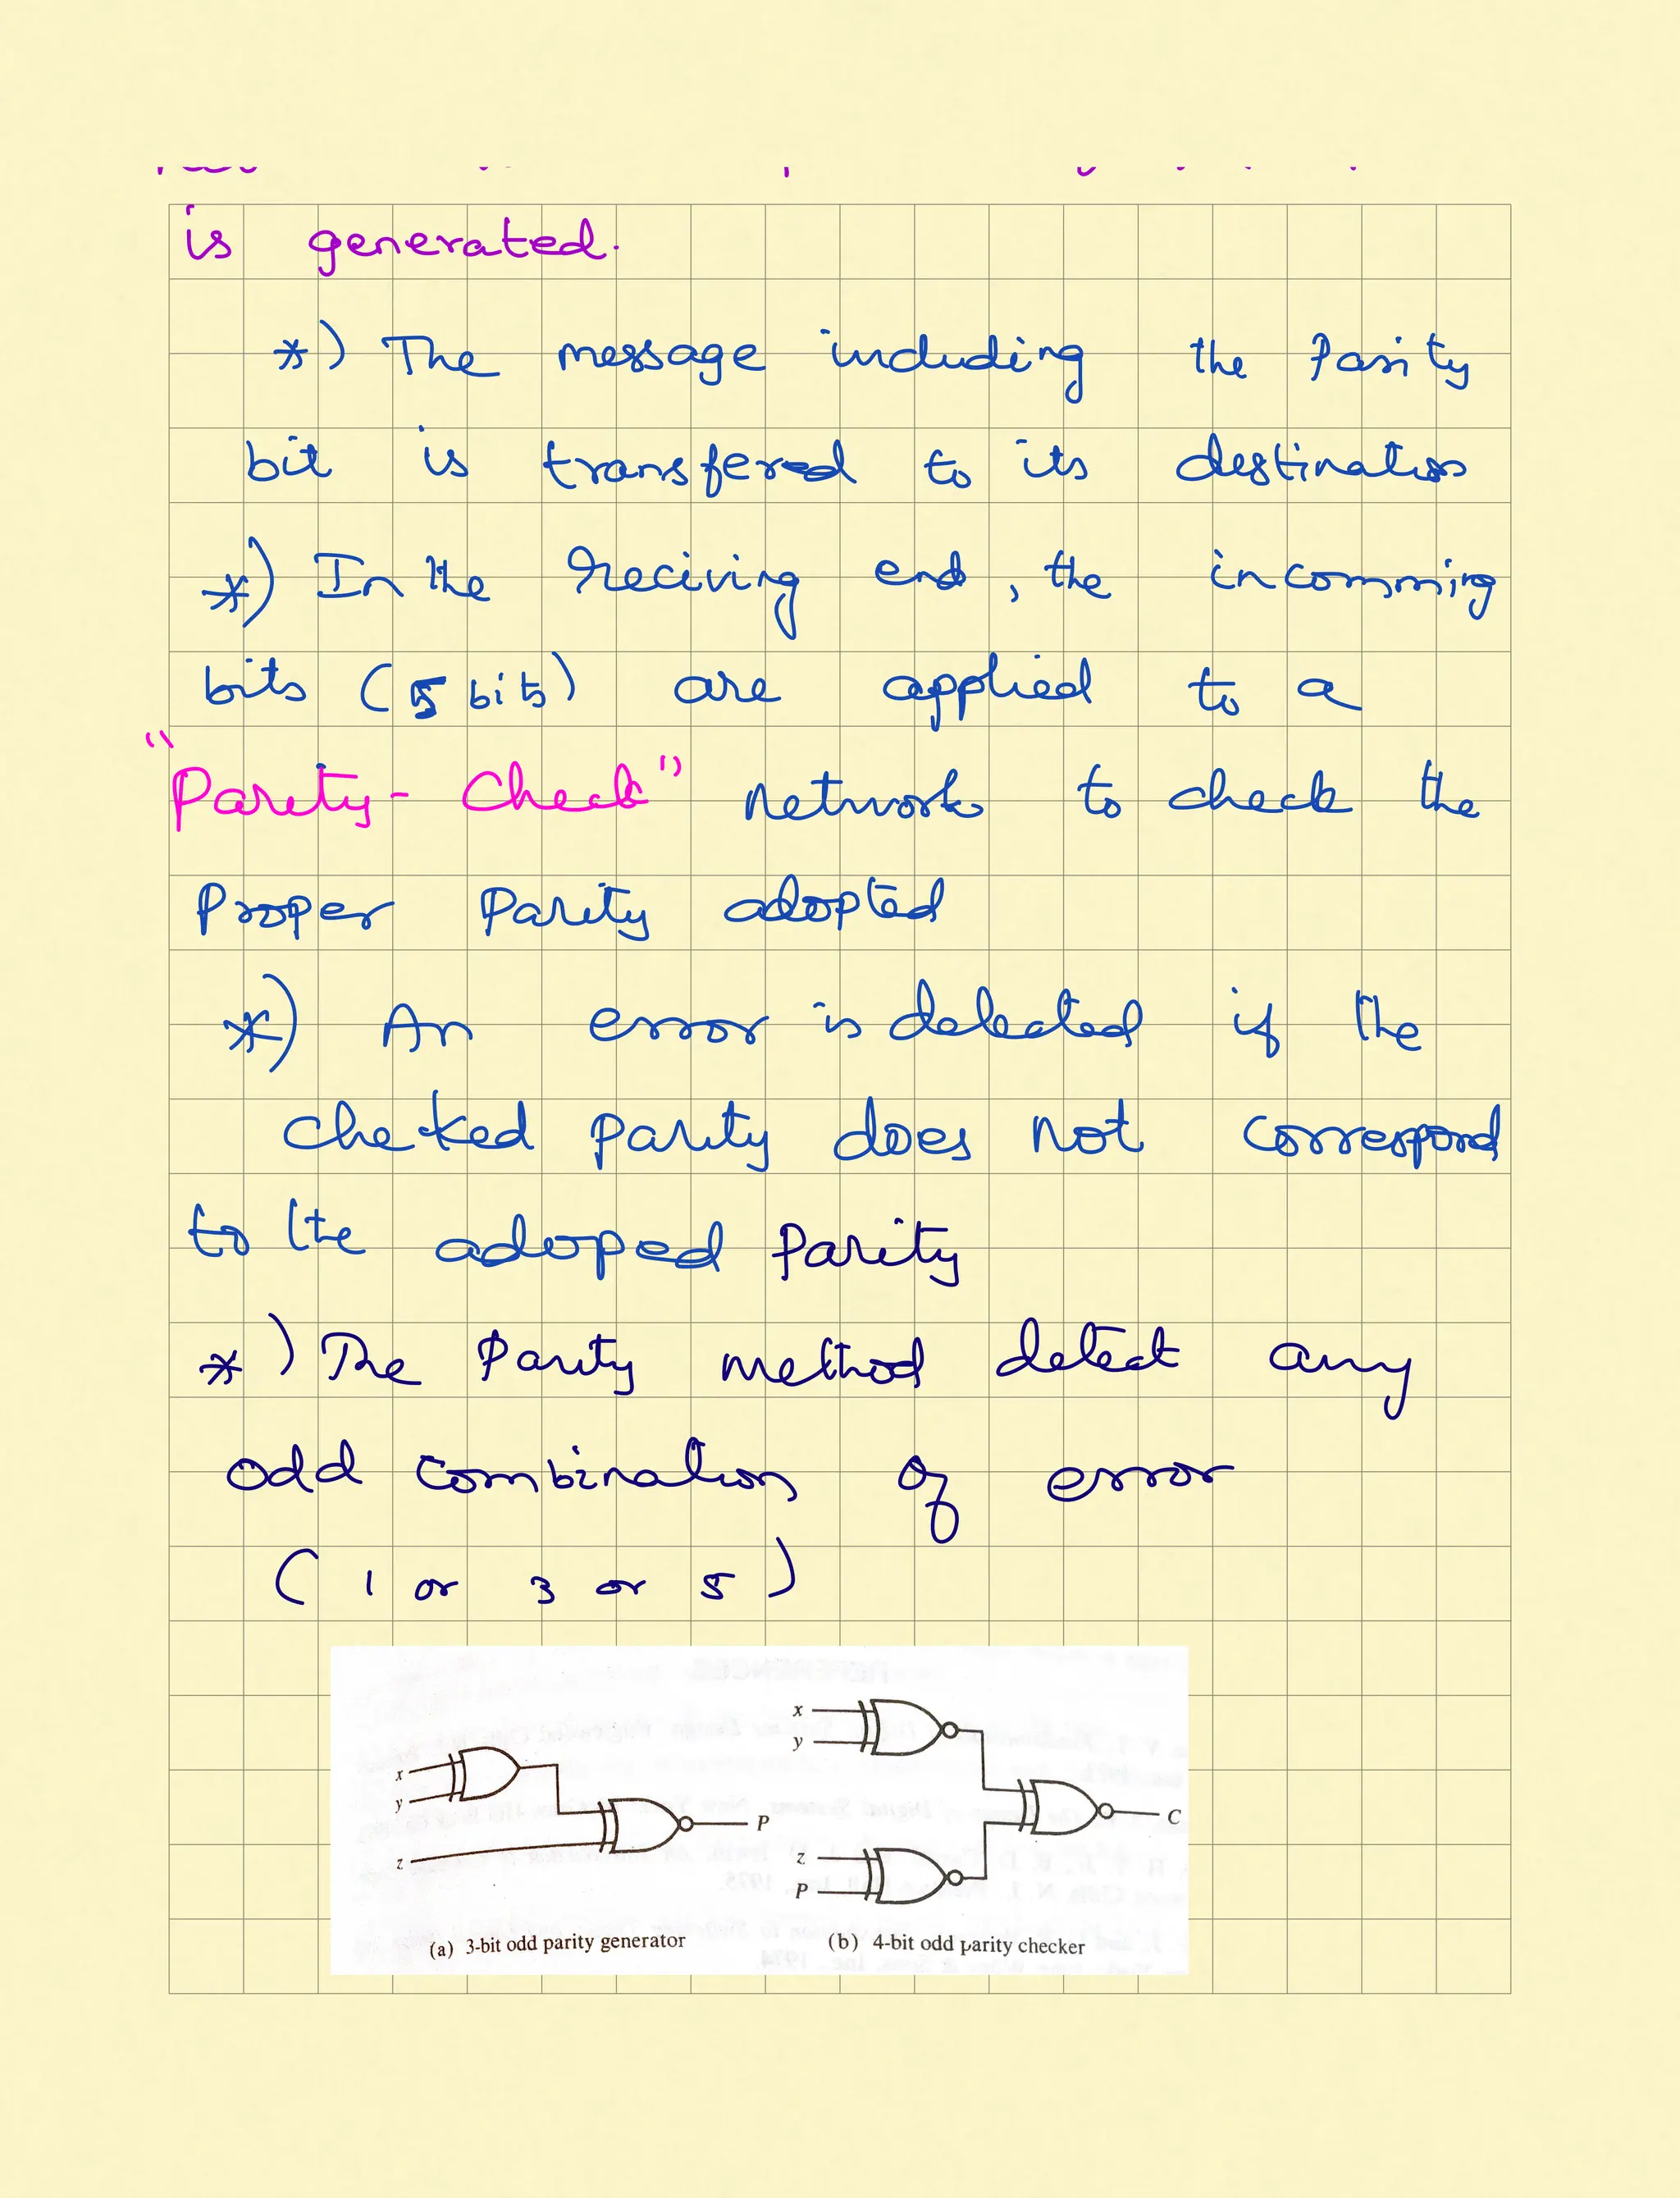 is generated.
*) The message including the Parity
bit is transfered to its destination
*) In the reciving end, the incomming
bits (5 bits) are applied to a
"Parity-Check" network to check the
Proper Parity adopted
*) An error is detected if the
checked parity does not correspond
to the adopped Parity
*) The Parity method detect any
odd combination of error
(1 or 3 or 5)
x
y
z
P
(a) 3-bit odd parity generator
x
y
z
P
C
(b) 4-bit odd parity checker